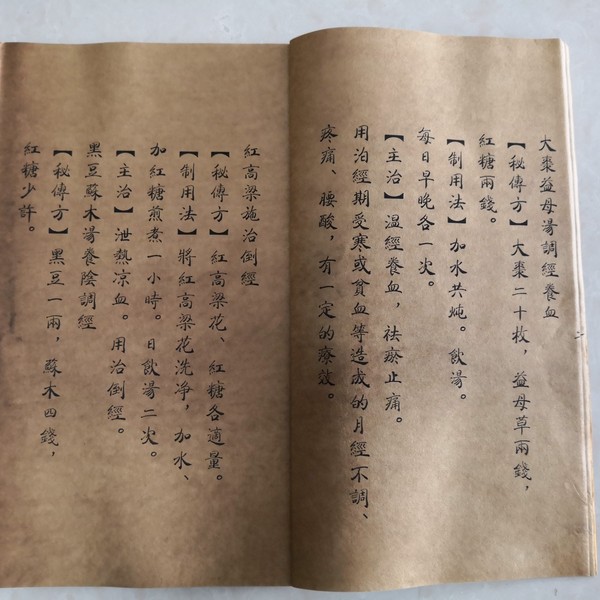 大棗益母湯調經養血
【秘傳方】大棗二十枚，益母草兩錢，
紅糖兩錢。
【制用法】加水共炖。飲湯。
每日早晚各一次。
【主治】溫經養血，祛瘀止痛。
用治經期受寒或貧血等造成的月經不調、
疼痛、腰酸，有一定的療效。
二
紅高梁施治倒經
【秘傳方】紅高梁花、紅糖各適量。
【制用法】將紅高梁花洗净，加水、
加紅糖煎煮一小時。日飲湯二次。
【主治】泄熱凉血。用治倒經。
黑豆蘇木湯養陰調經
【秘傳方】黑豆一兩，蘇木四錢，
紅糖少許。